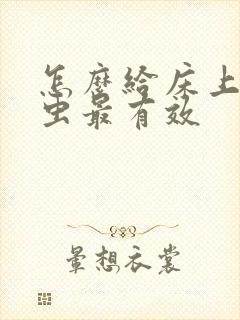 怎麽給床上
虫最有效
暈想衣裳